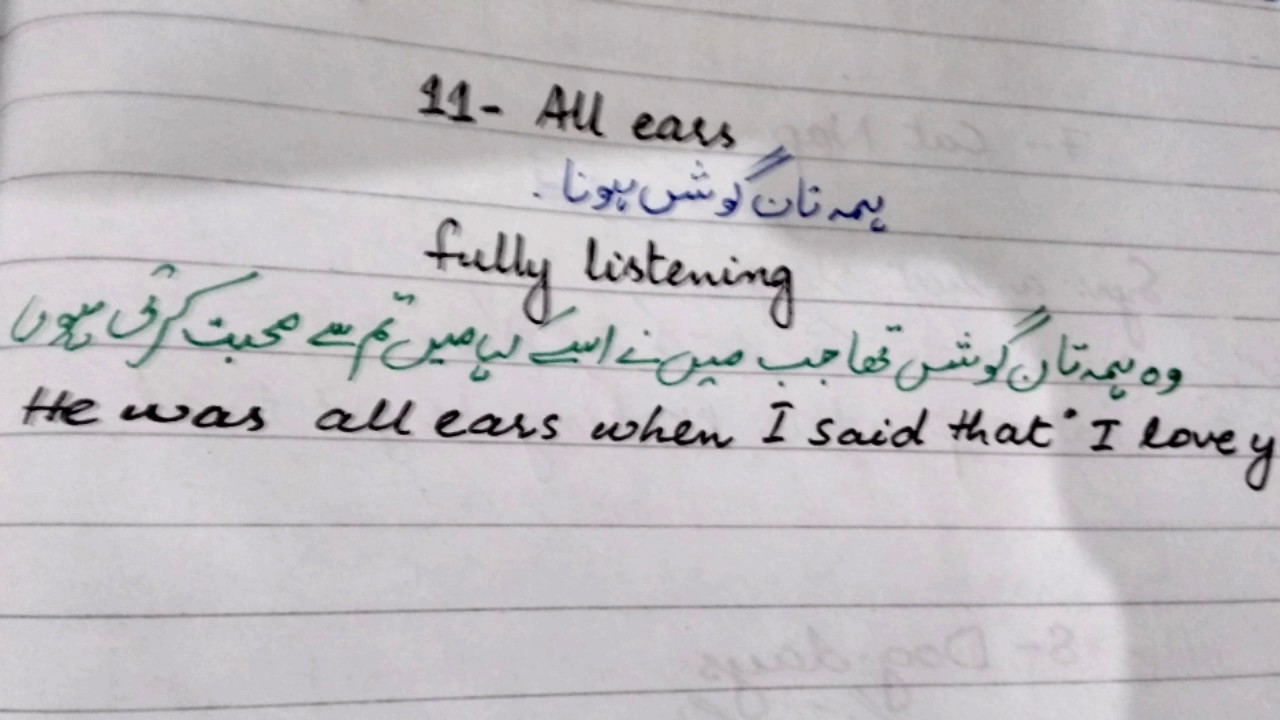 11- All ears
ہمہ تان گوش ہونا .
fully listening
وہ ہمہ تان گوش تھا جب میں نے اسے کہا میں تم سے محبت کرتی ہوں
He was all ears when I said that I love y